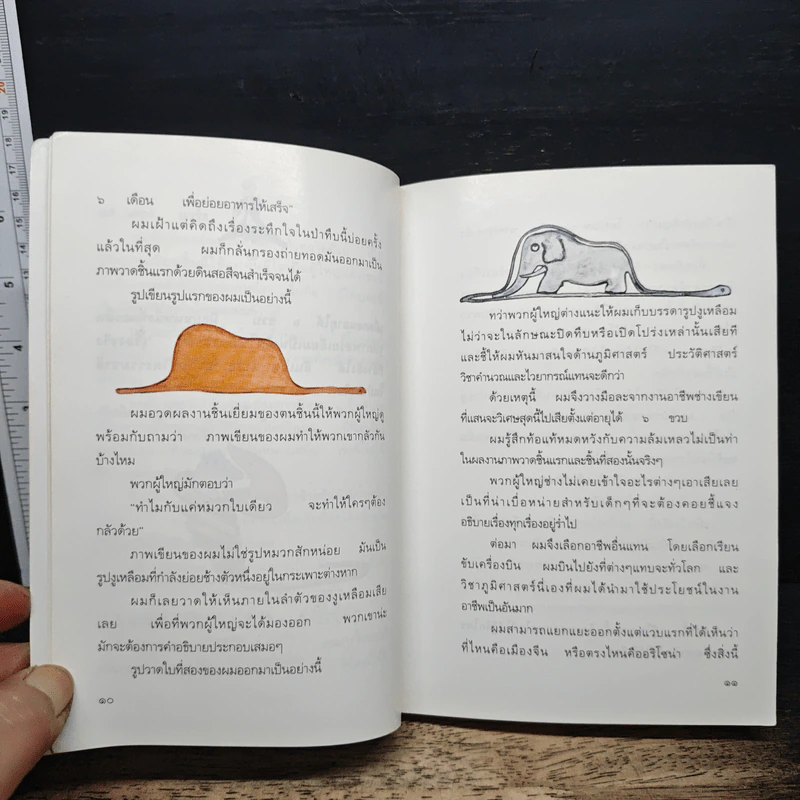 ๖ เดือน เพื่อย่อยอาหารให้เสร็จ"
ผมเฝ้าแต่คิดถึงเรื่องระทึกใจในป่าทึบนี้บ่อยครั้ง
แล้วในที่สุด ผมก็กลั่นกรองถ่ายทอดมันออกมาเป็น
ภาพวาดชิ้นแรกด้วยดินสอสีจนสำเร็จจนได้
รูปเขียนรูปแรกของผมเป็นอย่างนี้
ผมอวดผลงานชิ้นเยี่ยมของตนชิ้นนี้ให้พวกผู้ใหญ่ดู
พร้อมกับถามว่า ภาพเขียนของผมทำให้พวกเขากลัวกัน
บ้างไหม
พวกผู้ใหญ่มักตอบว่า
"ทำไมกับแค่หมวกใบเดียว จะทำให้ใครๆต้อง
กลัวด้วย"
ภาพเขียนของผมไม่ใช่รูปหมวกสักหน่อย มันเป็น
รูปงูเหลือมที่กำลังย่อยช้างตัวหนึ่งอยู่ในกระเพาะต่างหาก
ผมก็เลยวาดให้เห็นภายในลำตัวของงูเหลือมเสีย
เลย เพื่อที่พวกผู้ใหญ่จะได้มองออก พวกเขาน่ะ
มักจะต้องการคำอธิบายประกอบเสมอๆ
รูปวาดใบที่สองของผมออกมาเป็นอย่างนี้
๑๐
ทว่าพวกผู้ใหญ่ต่างแนะให้ผมเก็บบรรดารูปงูเหลือม
ไม่ว่าจะในลักษณะปิดทึบหรือเปิดโปร่งเหล่านั้นเสียที
และชี้ให้ผมหันมาสนใจด้านภูมิศาสตร์ ประวัติศาสตร์
วิชาคำนวณและไวยากรณ์แทนจะดีกว่า
ด้วยเหตุนี้ ผมจึงวางมือละจากงานอาชีพช่างเขียน
ที่แสนจะวิเศษสุดนี้ไปเสียตั้งแต่อายุได้ ๖ ขวบ
ผมรู้สึกท้อแท้หมดหวังกับความล้มเหลวไม่เป็นท่า
ในผลงานภาพวาดชิ้นแรกและชิ้นที่สองนั้นจริงๆ
พวกผู้ใหญ่ช่างไม่เคยเข้าใจอะไรต่างๆเอาเสียเลย
เป็นที่น่าเบื่อหน่ายสำหรับเด็กๆที่จะต้องคอยชี้แจง
อธิบายเรื่องทุกเรื่องอยู่ร่ำไป
ต่อมา ผมจึงเลือกอาชีพอื่นแทน โดยเลือกเรียน
ขับเครื่องบิน ผมบินไปยังที่ต่างๆแทบจะทั่วโลก และ
วิชาภูมิศาสตร์นี่เองที่ผมได้นำมาใช้ประโยชน์ในงาน
อาชีพเป็นอันมาก
ผมสามารถแยกแยะออกตั้งแต่แวบแรกที่ได้เห็นว่า
ที่ไหนคือเมืองจีน หรือตรงไหนคืออริโซน่า ซึ่งสิ่งนี้
๑๑
20
19
18
17
16
15
14
13
5
6